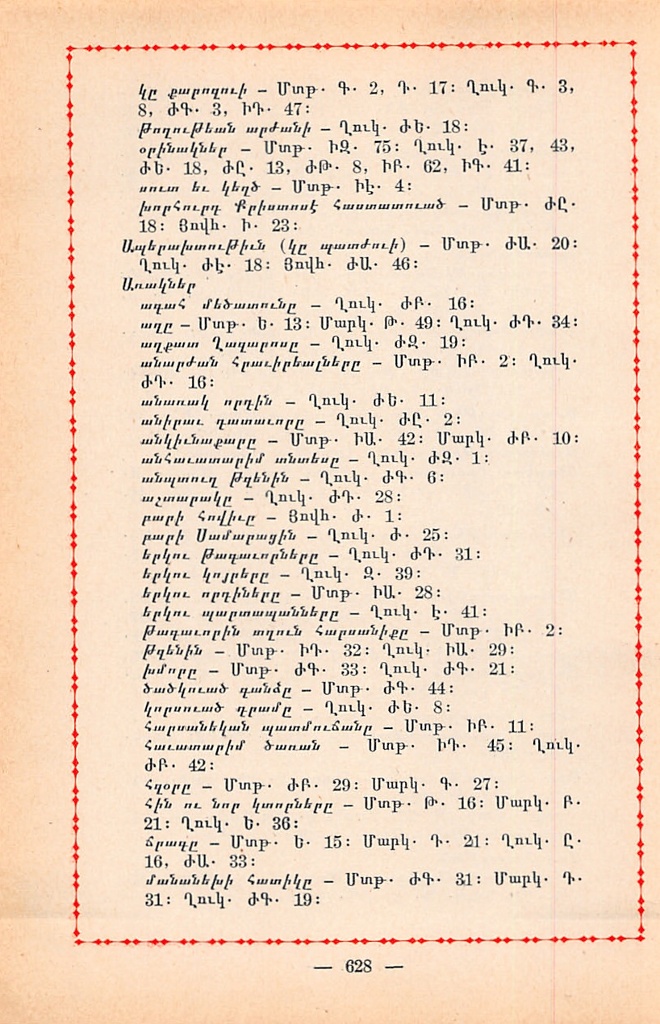 կը քարոզուի – Մտթ. Գ. 2, Դ. 17: Ղուկ. Գ. 3,
8, ԺԳ. 3, ԻԴ. 47:
թողութեան արժանի – Ղուկ. ԺԵ. 18:
օրինակներ – Մտթ. ԻԶ. 75: Ղուկ. Է. 37, 43,
ԺԵ. 18, ԺԸ. 13, ԺԹ. 8, ԻԲ. 62, ԻԳ. 41:
սուտ եւ կեղծ – Մտթ. ԻԷ. 4:
խորհուրդ Քրիստոսէ հաստատուած – Մտթ. ԺԸ.
18: Յովհ. Ի. 23:
Ապերախտութիւն (կը պատժուի) – Մտթ. ԺԱ. 20:
Ղուկ. ԺԷ. 18: Յովհ. ԺԱ. 46:
Առակներ
ագահ մեծատունը – Ղուկ. ԺԲ. 16:
աղը – Մտթ. Ե. 13: Մարկ. Թ. 49: Ղուկ. ԺԴ. 34:
աղքատ Ղազարոսը – Ղուկ. ԺԶ. 19:
անարժան հրաւիրեալները – Մտթ. ԻԲ. 2: Ղուկ.
ԺԴ. 16:
անառակ որդին – Ղուկ. ԺԵ. 11:
անիրաւ դատաւորը – Ղուկ. ԺԸ. 2:
անկիւնաքարը – Մտթ. ԻԱ. 42: Մարկ. ԺԲ. 10:
անհաւատարիմ տնտեսը – Ղուկ. ԺԶ. 1:
անպտուղ թզենին – Ղուկ. ԺԳ. 6:
աշտարակը – Ղուկ. ԺԴ. 28:
բարի հովիւը – Յովհ. Ժ. 1:
բարի Սամարացին – Ղուկ. Ժ. 25:
երկու թագաւորները – Ղուկ. ԺԴ. 31:
երկու կոյրերը – Ղուկ. Զ. 39:
երկու որդիները – Մտթ. ԻԱ. 28:
երկու պարտապանները – Ղուկ. Է. 41:
թագաւորին տղուն հարսանիքը – Մտթ. ԻԲ. 2:
թզենին – Մտթ. ԻԴ. 32: Ղուկ. ԻԱ. 29:
խմորը – Մտթ. ԺԳ. 33: Ղուկ. ԺԳ. 21:
ծածկուած գանձը – Մտթ. ԺԳ. 44:
կորսուած դրամը – Ղուկ. ԺԵ. 8:
հարսանեկան պատմուճանը – Մտթ. ԻԲ. 11:
հաւատարիմ ծառան – Մտթ. ԻԴ. 45: Ղուկ.
ԺԲ. 42:
հզօրը – Մտթ. ԺԲ. 29: Մարկ. Գ. 27:
հին ու նոր կտորները – Մտթ. Թ. 16: Մարկ. Բ.
21: Ղուկ. Ե. 36:
ճրագը – Մտթ. Ե. 15: Մարկ. Դ. 21: Ղուկ. Ը.
16, ԺԱ. 33:
մանանեխի հատիկը – Մտթ. ԺԳ. 31: Մարկ. Դ.
31: Ղուկ. ԺԳ. 19:
— 628 —